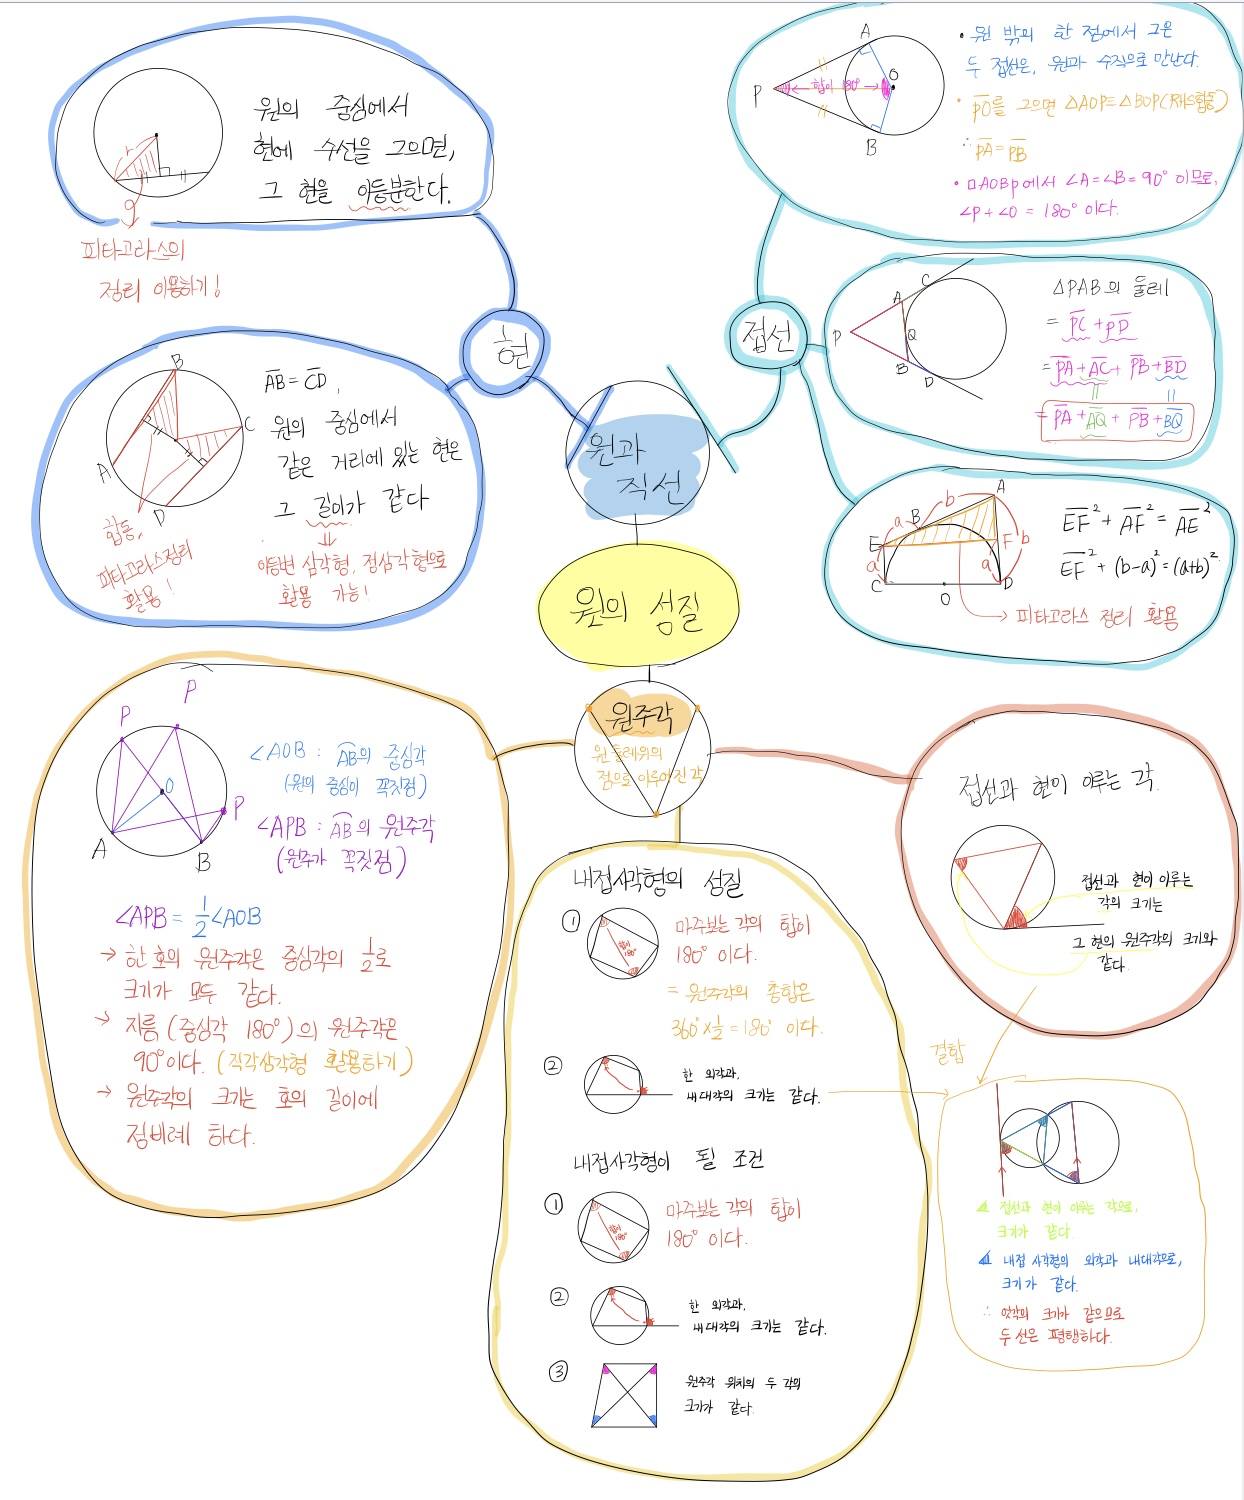 원의 중심에서
현에 수선을 그으면,
그 현을 이등분한다.
r
피타고라스의
정리 이용하기!
현
B
C
A
D
AB = CD,
원의 중심에서
같은 거리에 있는 현은
그 길이가 같다
합동,
피타고라스정리
활용!
이등변 삼각형, 정삼각형으로
활용 가능!
원과
직선
접선
A
P
O
B
합이 180°
• 원 밖의 한 점에서 그은
두 접선은, 원과 수직으로 만난다.
• PO를 그으면 △AOP≡△BOP(RHS합동)
∴ PA = PB
• □AOBP에서 ∠A=∠B=90° 이므로,
∠P+∠O = 180° 이다.
C
A
P
Q
B
D
△PAB의 둘레
= PC + PD
= PA + AC + PB + BD
= PA + AQ + PB + BQ
A
b
B
a
E
F
b
a
a
C
O
D
EF² + AF² = AE²
EF² + (b-a)² = (a+b)²
→ 피타고라스 정리 활용
원의 성질
원주각
원 둘레위의
점으로 이루어진 각
P
P
O
P
A
B
∠AOB : AB의 중심각
(원의 중심이 꼭짓점)
∠APB : AB의 원주각
(원주가 꼭짓점)
∠APB = 1/2 ∠AOB
→ 한 호의 원주각은 중심각의 1/2로
크기가 모두 같다.
→ 지름 (중심각 180°)의 원주각은
90°이다. (직각삼각형 활용하기)
→ 원주각의 크기는 호의 길이에
정비례 하다.
내접사각형의 성질
①
합이
180°
마주보는 각의 합이
180° 이다.
= 원주각의 총합은
360°×1/2 = 180° 이다.
②
한 외각과,
내대각의 크기는 같다.
내접사각형이 될 조건
①
합이
180°
마주보는 각의 합이
180° 이다.
②
한 외각과,
내대각의 크기는 같다.
③
원주각 위치의 두 각의
크기가 같다.
접선과 현이 이루는 각.
접선과 현이 이루는
각의 크기는
그 현의 원주각의 크기와
같다.
결합
접선과 현이 이루는 각으로,
크기가 같다.
내접 사각형의 외각과 내대각으로,
크기가 같다.
∴ 엇각의 크기가 같으므로
두 선은 평행하다.